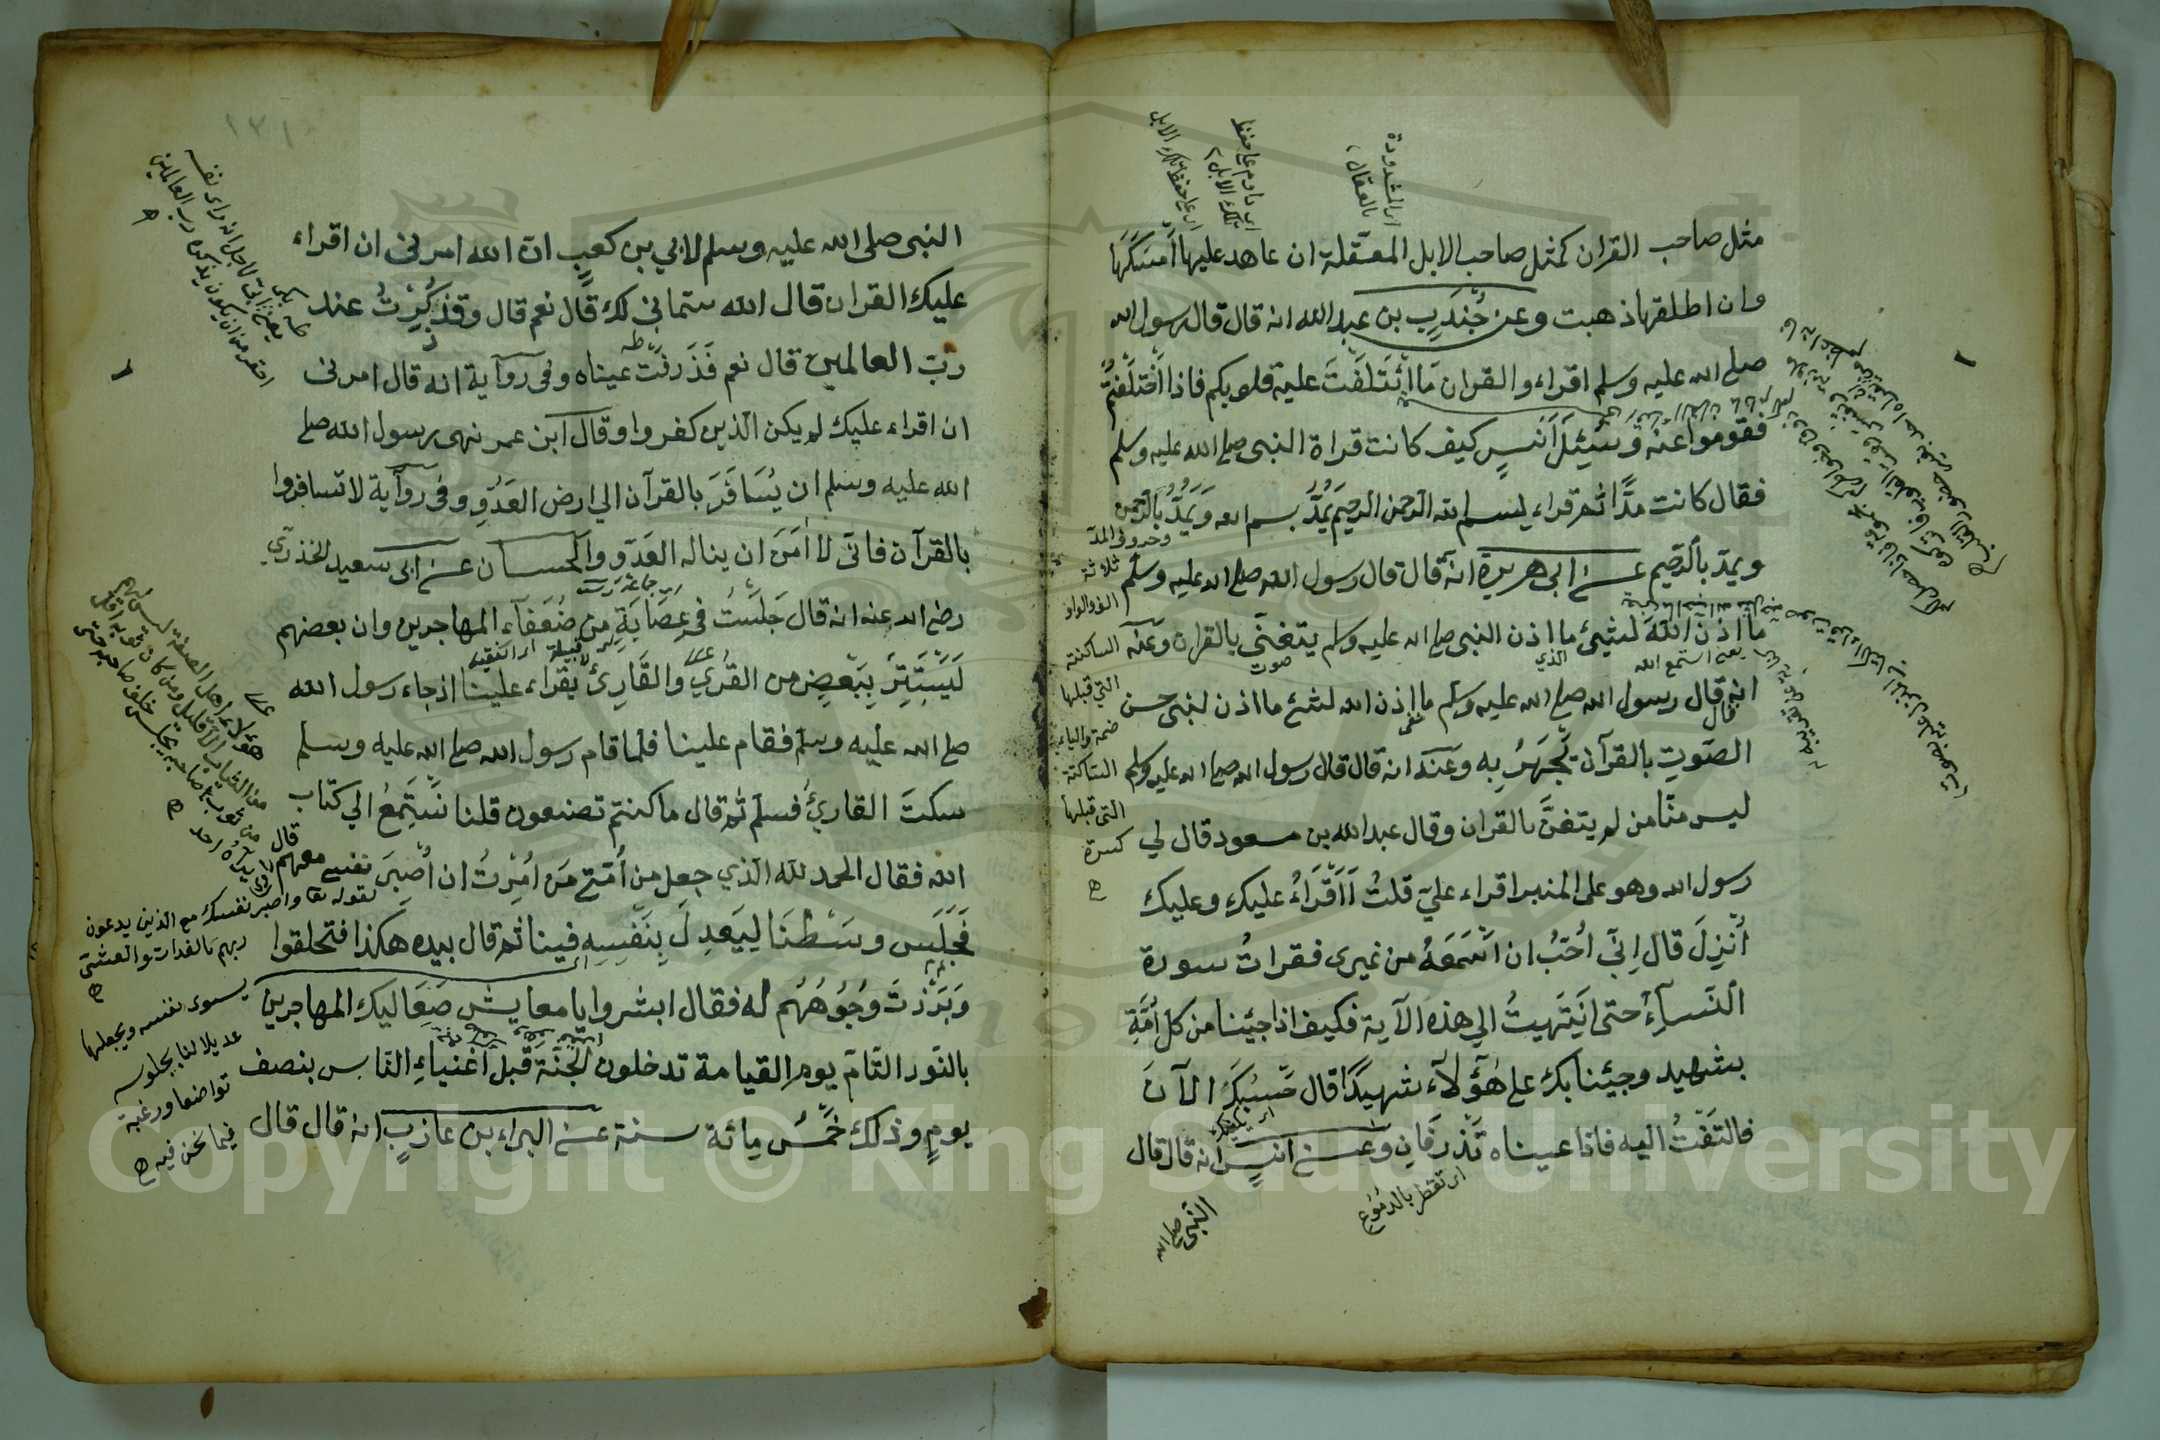 مثل صاحب القران كمثل صاحب الابل المعقلة ان عاهد عليها امسكها
وان اطلقها ذهبت وعن جندب بن عبد الله انه قال قال رسول الله
صلى الله عليه وسلم اقراء والقران ما ائتلفت عليه قلوبكم فاذا اختلفتم
فقوموا عنه وسئل انس كيف كانت قراة النبي صلى الله عليه وسلم
فقال كانت مدا ثم قراء بسم الله الرحمن الرحيم يمد بسم الله ويمد بالرحمن
ويمد بالرحيم عن ابي هريرة انه قال قال رسول الله صلى الله عليه وسلم
ما اذن الله لشيئ ما اذن النبي صلى الله عليه وسلم يتغنى بالقران وعنه
انه قال رسول الله صلى الله عليه وسلم ما اذن الله لشئ ما اذن لنبي حسن
الصوت بالقرآن يجهر به وعنه انه قال قال رسول الله صلى الله عليه وسلم
ليس منا من لم يتغن بالقران وقال عبد الله بن مسعود قال لي
رسول الله وهو على المنبر اقراء علي قلت أأقراء عليك وعليك
أنزل قال اني احب ان اسمعه من غيرى فقرات سورة
النساء حتى انتهيت الي هذه الآية فكيف اذا جيئنا من كل امة
بشهيد وجيئنا بك على هؤلآء شهيدا قال حسبك الآن
فالتفت اليه فاذا عيناه تذرفان وعن انس انه قال قال
النبي صلى الله
اى المشدودة
بالعقال
اى تقطر بالدموع
وحروف المد
ثلاثة
الف والواو
الساكنة
التي قبلها
ضمة والياء
الساكنة
التى قبلها
كسرة
يعنى استمع الله
الذي
صوت
قال
النبى صلى الله عليه وسلم لابي بن كعب ان الله امرنى ان اقراء
عليك القران قال الله سماني لك قال نعم قال وقد ذكرت عند
رب العالمين قال نعم فذرفت عيناه وفى رواية انه قال امرنى
ان اقراء عليك لم يكن الذين كفروا وقال ابن عمر نهى رسول الله صلى
الله عليه وسلم ان يسافر بالقرآن الي ارض العدو وفى رواية لا تسافروا
بالقرآن فانى لا امن ان يناله العدو والحسان عن ابى سعيد الخدري
رضى الله عنه انه قال جلست في عصابة من ضعفآء المهاجرين وان بعضهم
ليستتر ببعض من العري والقارئ يقراء علينا اذ جاء رسول الله
صلى الله عليه وسلم فقام علينا فلما قام رسول الله صلى الله عليه وسلم
سكت القاري فسلم ثم قال ما كنتم تصنعون قلنا نستمع الي كتاب
الله فقال الحمد لله الذي جعل من أمتي من امرت ان أصبر نفسي معهم قال
فجلس وسطنا ليعدل بنفسه فينا ثم قال بيده هكذا فتحلقوا
وبرزت وجوههم له فقال ابشروا يا معايش صعاليك المهاجرين
بالنور التام يوم القيامة تدخلون الجنة قبل اغنياء الناس بنصف
يوم وذلك خمس مائة سنة عن البراء بن عازب انه قال قال
لقوله تعا واصبر نفسك مع الذين يدعون
ربهم بالغدات والعشي
يسوى نفسه ويجعلها
عديلا لنا بجلوسه
تواضعا ورغبة
فيما نحن فيه
١٣١
Copyright © King Saud University